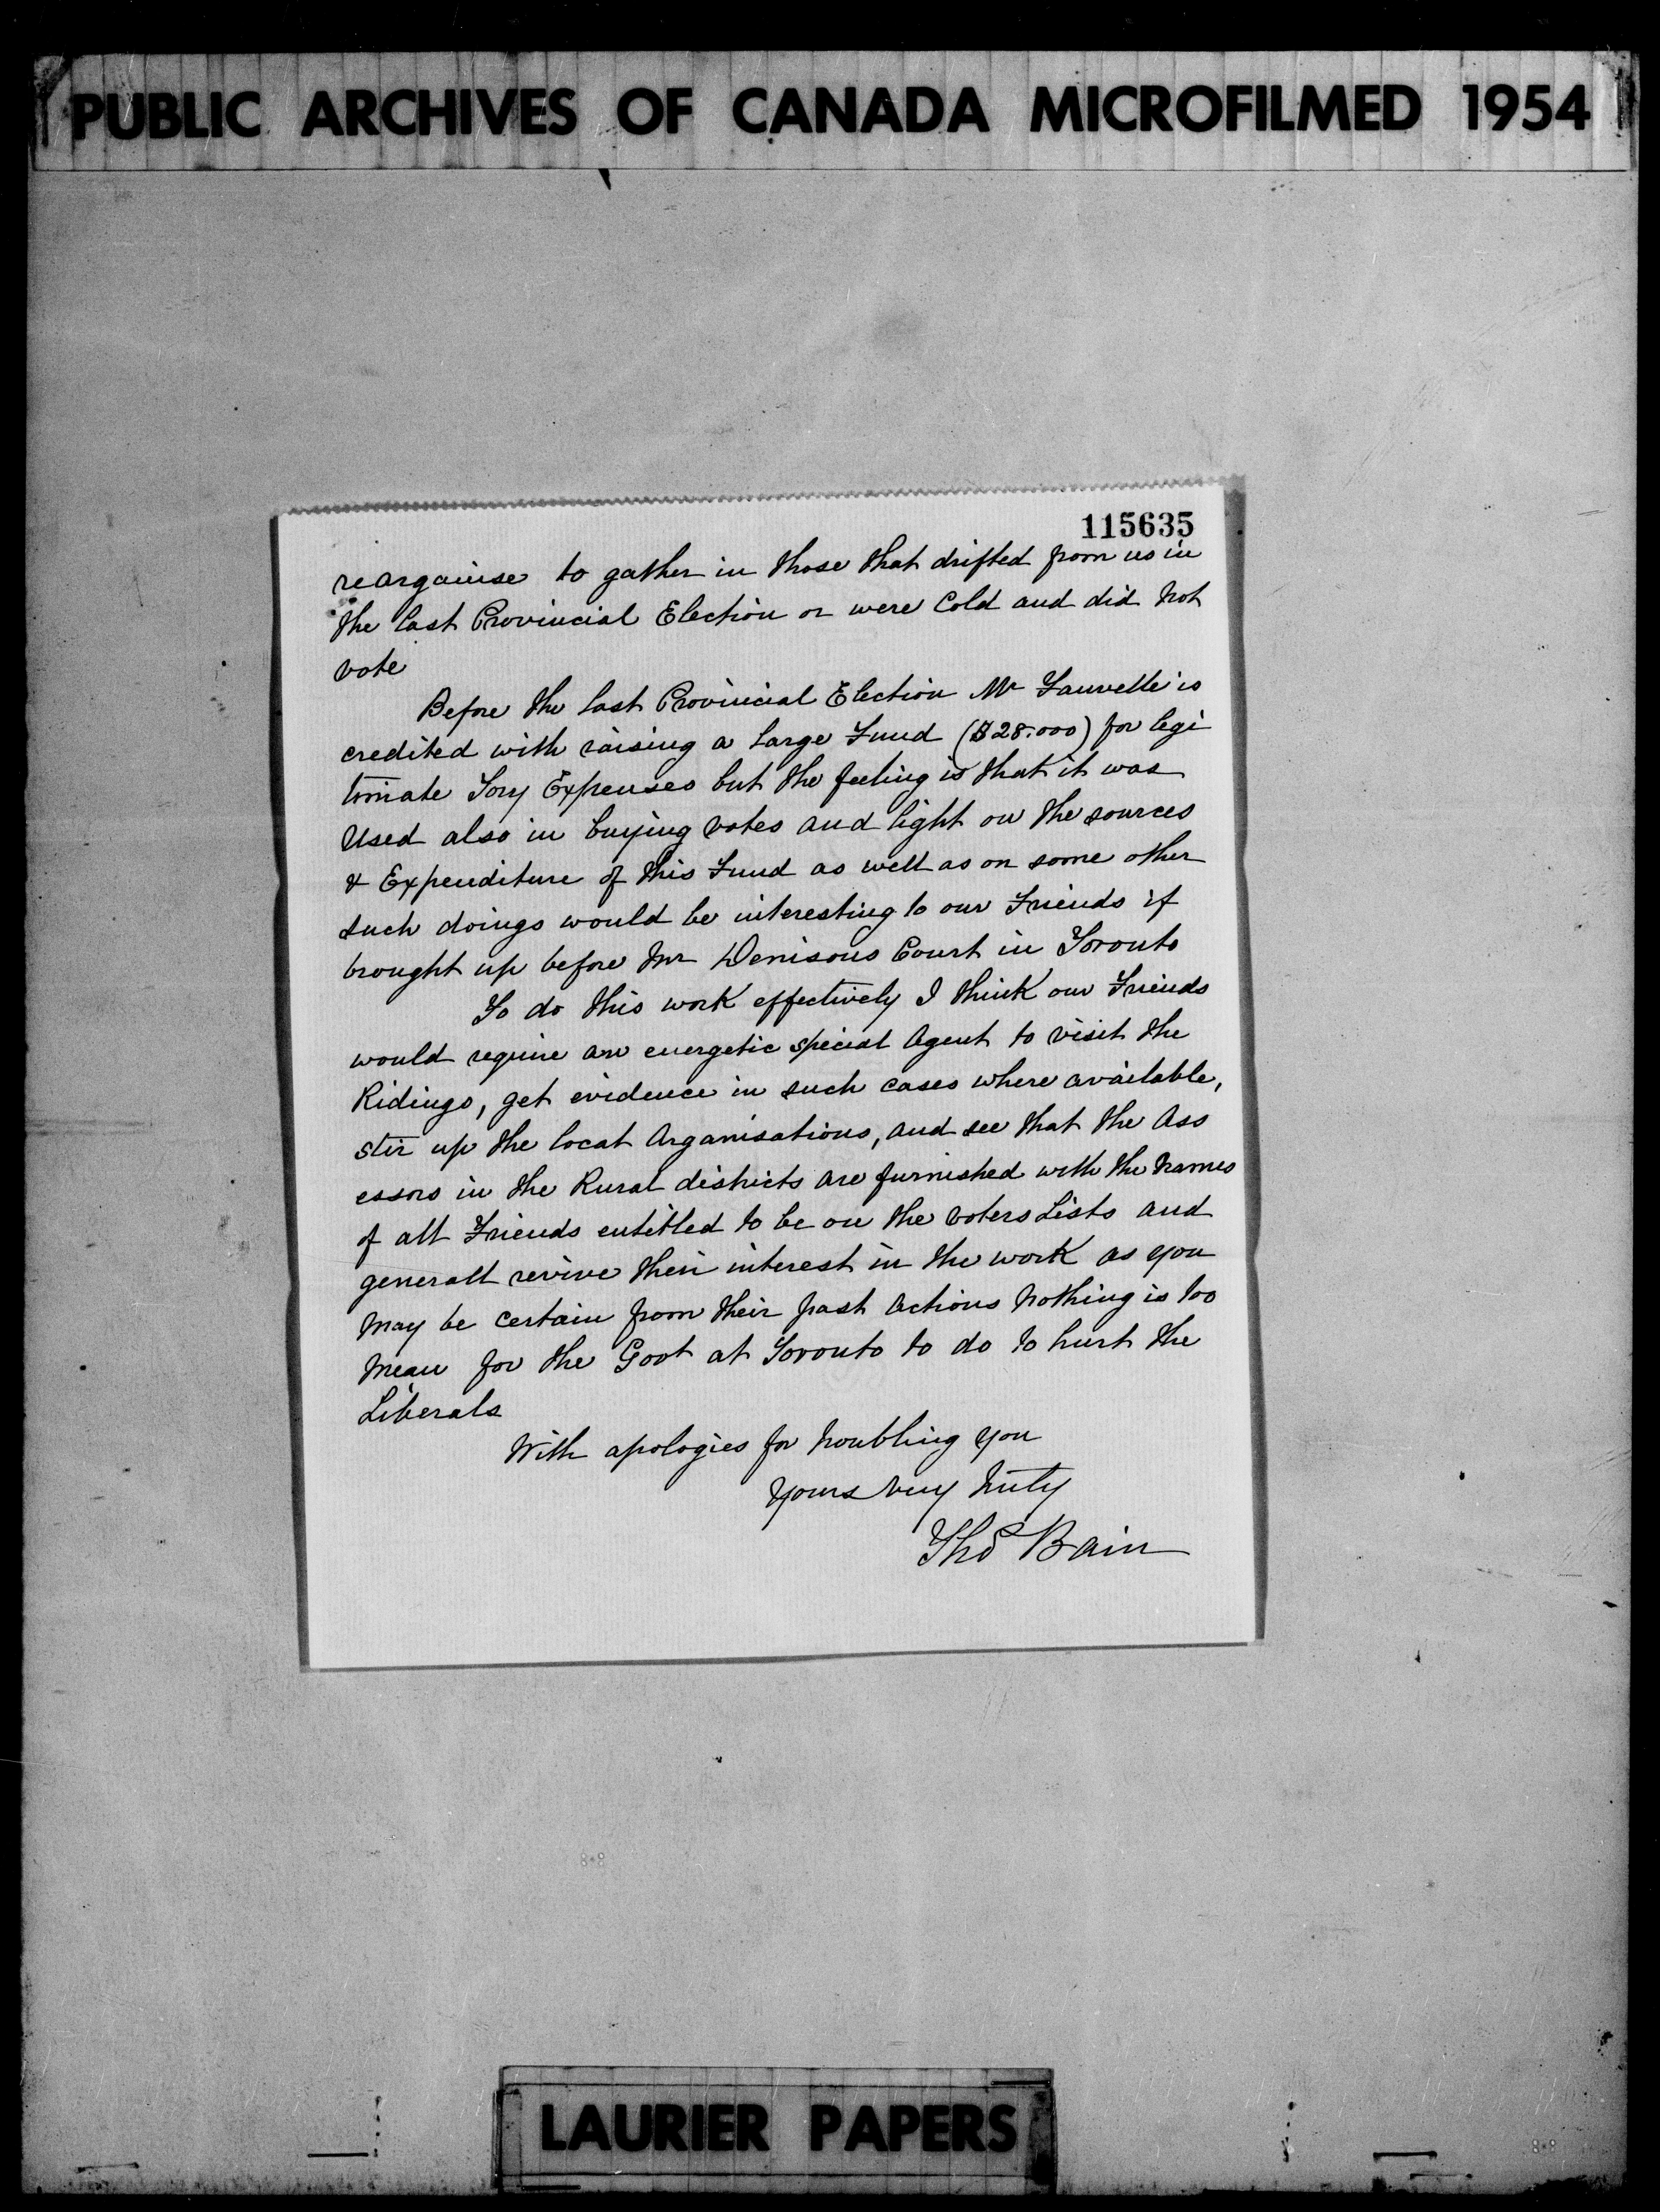 PUBLIC ARCHIVES OF CANADA MICROFILMED 1954
115635
reorganise to gather in those that drifted from us in
the last Provincial Election or were Cold and did not
vote
Before the last Provincial Election Mr is
credited with raising a large Fund ($28.000) for legi
timate Tory Expenses but the feeling is that it was
used also in buying votes and light on the sources
& Expenditure of this Fund as well as on some other
such doings would be interesting to our Friends if
brought up before Mr Denisons Court in Toronto
To do this work effectively I think our Friends
would require an energetic special Agent to visit the
Ridings, get evidence in such cases where available,
stir up the local Organisations, and see that the Ass
essors in the Rural districts are furnished with the names
of all Friends entitled to be on the voters Lists and
generall revive their interest in the work as you
may be certain from their past actions nothing is too
mean for the Govt at Toronto to do to hurt the
Liberals
With apologies for troubling you
Yours very truly
Thos Bain
LAURIER PAPERS